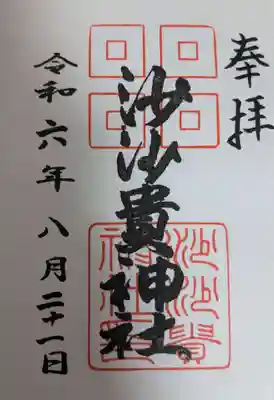 奉拝
沙沙貴神社
令和六年八月二十一日
沙沙貴
神社印